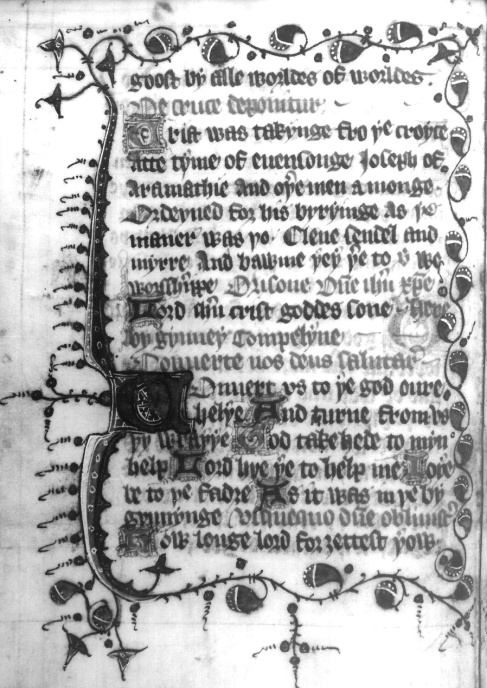 goost by alle worldes of worldes.
De cruce deponitur
Crist was takynge fro ye croyce
Atte tyme of euensonge Joseph of
Aramathie And oyemen a monge
Ordeyned for his byryinge as ye
maner was yo. Clene sendel and
myrre And bawme yey ye to v we
worshype Orisone Dne ihu xpe
Lord ihu crist goddes sone Here
by gynney Compelyne
Conuerte nos deus salutar
Onuert vs to ye god oure
helye And turne from vs
yy wrayye God take hede to myn
help Lord hye ye to help me Ioye
be to ye fadre As it was in ye by
gynnynge Usquequo dne obliuisc
How longe lord forzettest yow